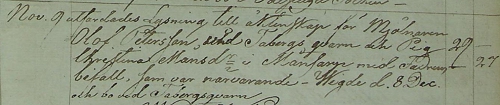 Nov. 9 utfärdades Lysning till äktenskap för Mjölnaren
Olof Petersson, vid Tabergs qvarn och Pig.
Christina Månsd:r i Månstorp med
befall, som var närvarande – Wigde d. 8. Dec.
och bo vid Tabergsqvarn
29 – 27